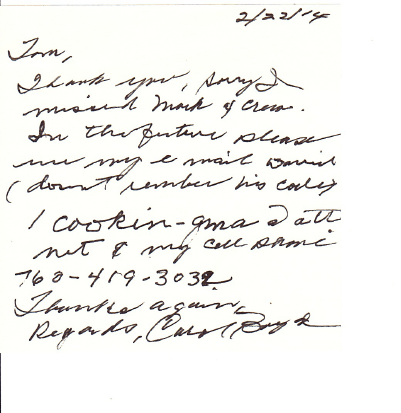 2/22/14
Tom,
Thank you, sorry I
missed Mark & Crew.
In the future please
use my e mail David
(doesn't rember his code)
1 cookin-gma @ att
net & my cell phone
760-419-3032
Thanks again,
Regards, Carol